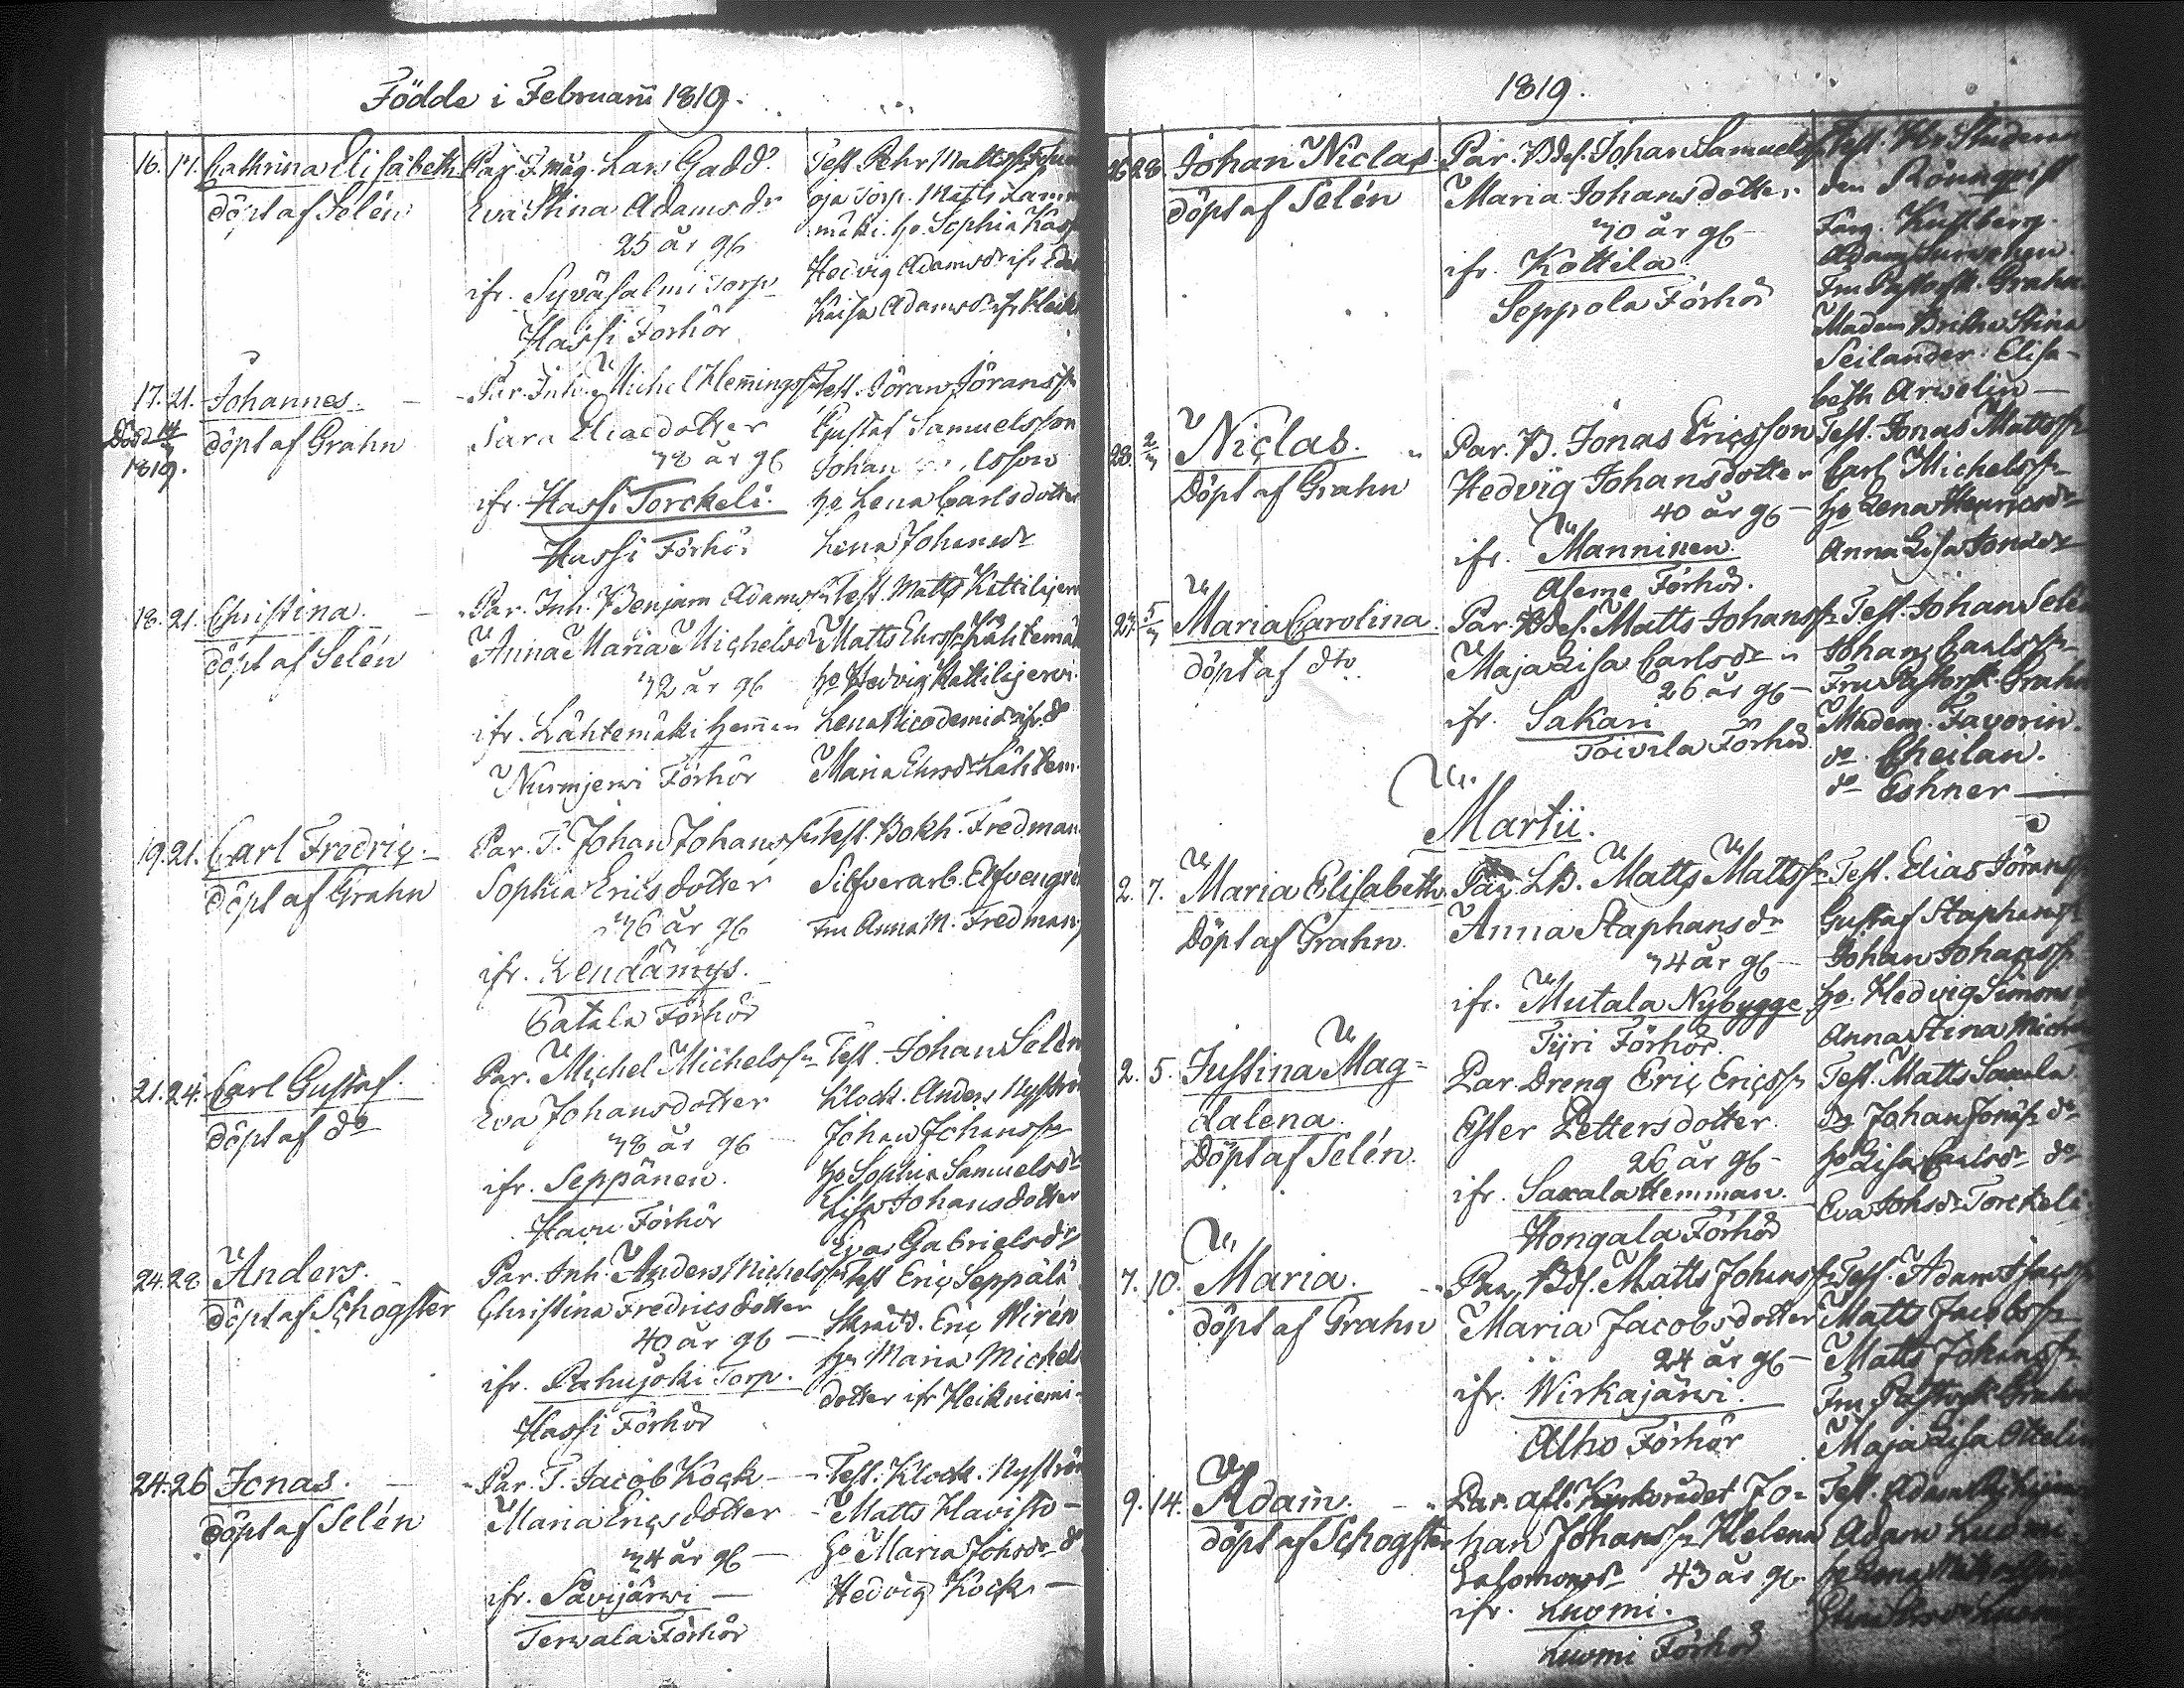 Födde i Februarii 1819.
16. 17. Cathrina Elisabeth
döpt af Selén
Par. Lars Gadd
Eva Stina Adamsdr
25 år gb
ifr. Syväsalmi Torp
Hassi Förhör
Test. Pehr Mattss
Torp. Matts
mäki. ho Sophia
Hedvig Adamsdr ifr
Kaisa Adamsdr ifr
17. 21. Johannes
Död 14/
1819.
döpt af Grahn
Par. Inh. Michel Hemmingss
Sara Eliaedotter
38 år gb
ifr. Hassi Torckeli.
Hassi Förhör
Test. Jöran Jöranss
Gustaf Samuelsson
Johan
ho Lena Carlsdotter
Lena Johansdr
18. 21. Christina
döpt af Selén
Par. Inh. Benjam Adamss
Anna Maria Michelsdr
32 år gb
ifr. Lähtemäki hemman
Nurmjerwi Förhör
Test. Matts Kattilijerwi
Matts Ehrss Lähtemäk
ho Hedvig Kattilijerwi
Lena Nicodemidr ifr do
Maria Ehrsdr Lähtem.
19. 21. Carl Fredric
döpt af Grahn
Par. T. Johan Johanss
Sophia Ericsdotter
36 år gb
ifr. Lendämys.
Patala Förhör
Test. Bokh. Fredman
Silfverarb. Elfvengren
Fru Anna M. Fredman
21. 24. Carl Gustaf.
döpt af do
Par. Michel Michelss
Eva Johansdotter
38 år gb
ifr. Seppänen.
Havu Förhör
Test. Johan Selén
Klock. Anders Nyström
Johan Johanss
ho Sophia Samuelsdr
Lisa Johansdotter
Eva Gabrielsdr
24. 28. Anders.
döpt af Schogster
Par. Inh. Anders Michelss
Christina Fredricsdotter
40 år gb
ifr. Pahujoki Torp.
Hassi Förhör
Test Eric Seppälä
Skrädd. Eric Wirén
ho Maria Michels
dotter ifr Heikniemi
24. 26 Jonas.
döpt af Selén
Par. T. Jacob Kock
Maria Ericsdotter
34 år gb
ifr. Savijärwi
Terwala Förhör
Test. Klock. Nyström
Matts Havisto
ho Maria Johsdr do
Hedvig Kock
1819.
26 28. Johan Niclas
döpt af Selén
Par. Bdes. Johan Samuelss
Maria Johansdotter
30 år gb
ifr. Kottila
Seppola Förhör
Test. Hr Studeran
den Rönnqvist
Färg. Kustberg
Adam
Fru Pastorsk. Grahn
Madem Britha Stina
Seilander. Elisa-
beth Arwelin
28. 2/3 Niclas.
Döpt af Grahn
Par. B. Jonas Ericsson
Hedvig Johansdotter
40 år gb
ifr. Manninen
Aseme Förhör.
Test. Jonas Mattss
Carl Michelss
ho Lena Henricsdr
Anna Lisa Jonaedr
27. 5/3 Maria Carolina
döpt af dto
Par. Bdes. Matts Johanss
Maja Lisa Carlsdr
26 år gb
ifr. Sakari
Toivila Förhör
Test. Johan Selén
Johan Carlss
Fru Pastorsk. Grahn
Madem. Favorin.
do Cheilan.
do Eshner
Martii.
2. 7. Maria Elisabeth
Döpt af Grahn
Par. LB. Matts Mattss
Anna Staphansdr
34 år gb
ifr. Mutala Nybygge
Tijri Förhör.
Test. Elias Jöranss
Gustaf Staphanss
Johan Johanss
ho. Hedvig Simons
Anna Stina Mich
2. 5. Justina Mag=
dalena.
Döpt af Selén.
Par. Dreng Eric Ericss
Ester Pettersdotter.
26 år gb
ifr. Saxala Hemman.
Hongala Förhör
Test. Matts Saxala
Johan Jonass do
ho Lisa Carlsdr do
Eva Johsdr Torckeli
7. 10. Maria.
döpt af Grahn
Par. Bds. Matts Johanss
Maria Jacobsdotter
24 år gb
ifr. Wirkajärwi.
Alho Förhör
Test. Adam
Matts Jacobss
Matts Johanss
Fru Pastorsk. Grahn
Maja Lisa Ottelin
9. 14. Adam.
döpt af Schogster
Par. afl. Kyrkorådet Jo-
han Johanss Helena
Salomonsdr 43 år gb
ifr. Luomi.
Luomi Förhör
Test. Adam
Adam Luomi